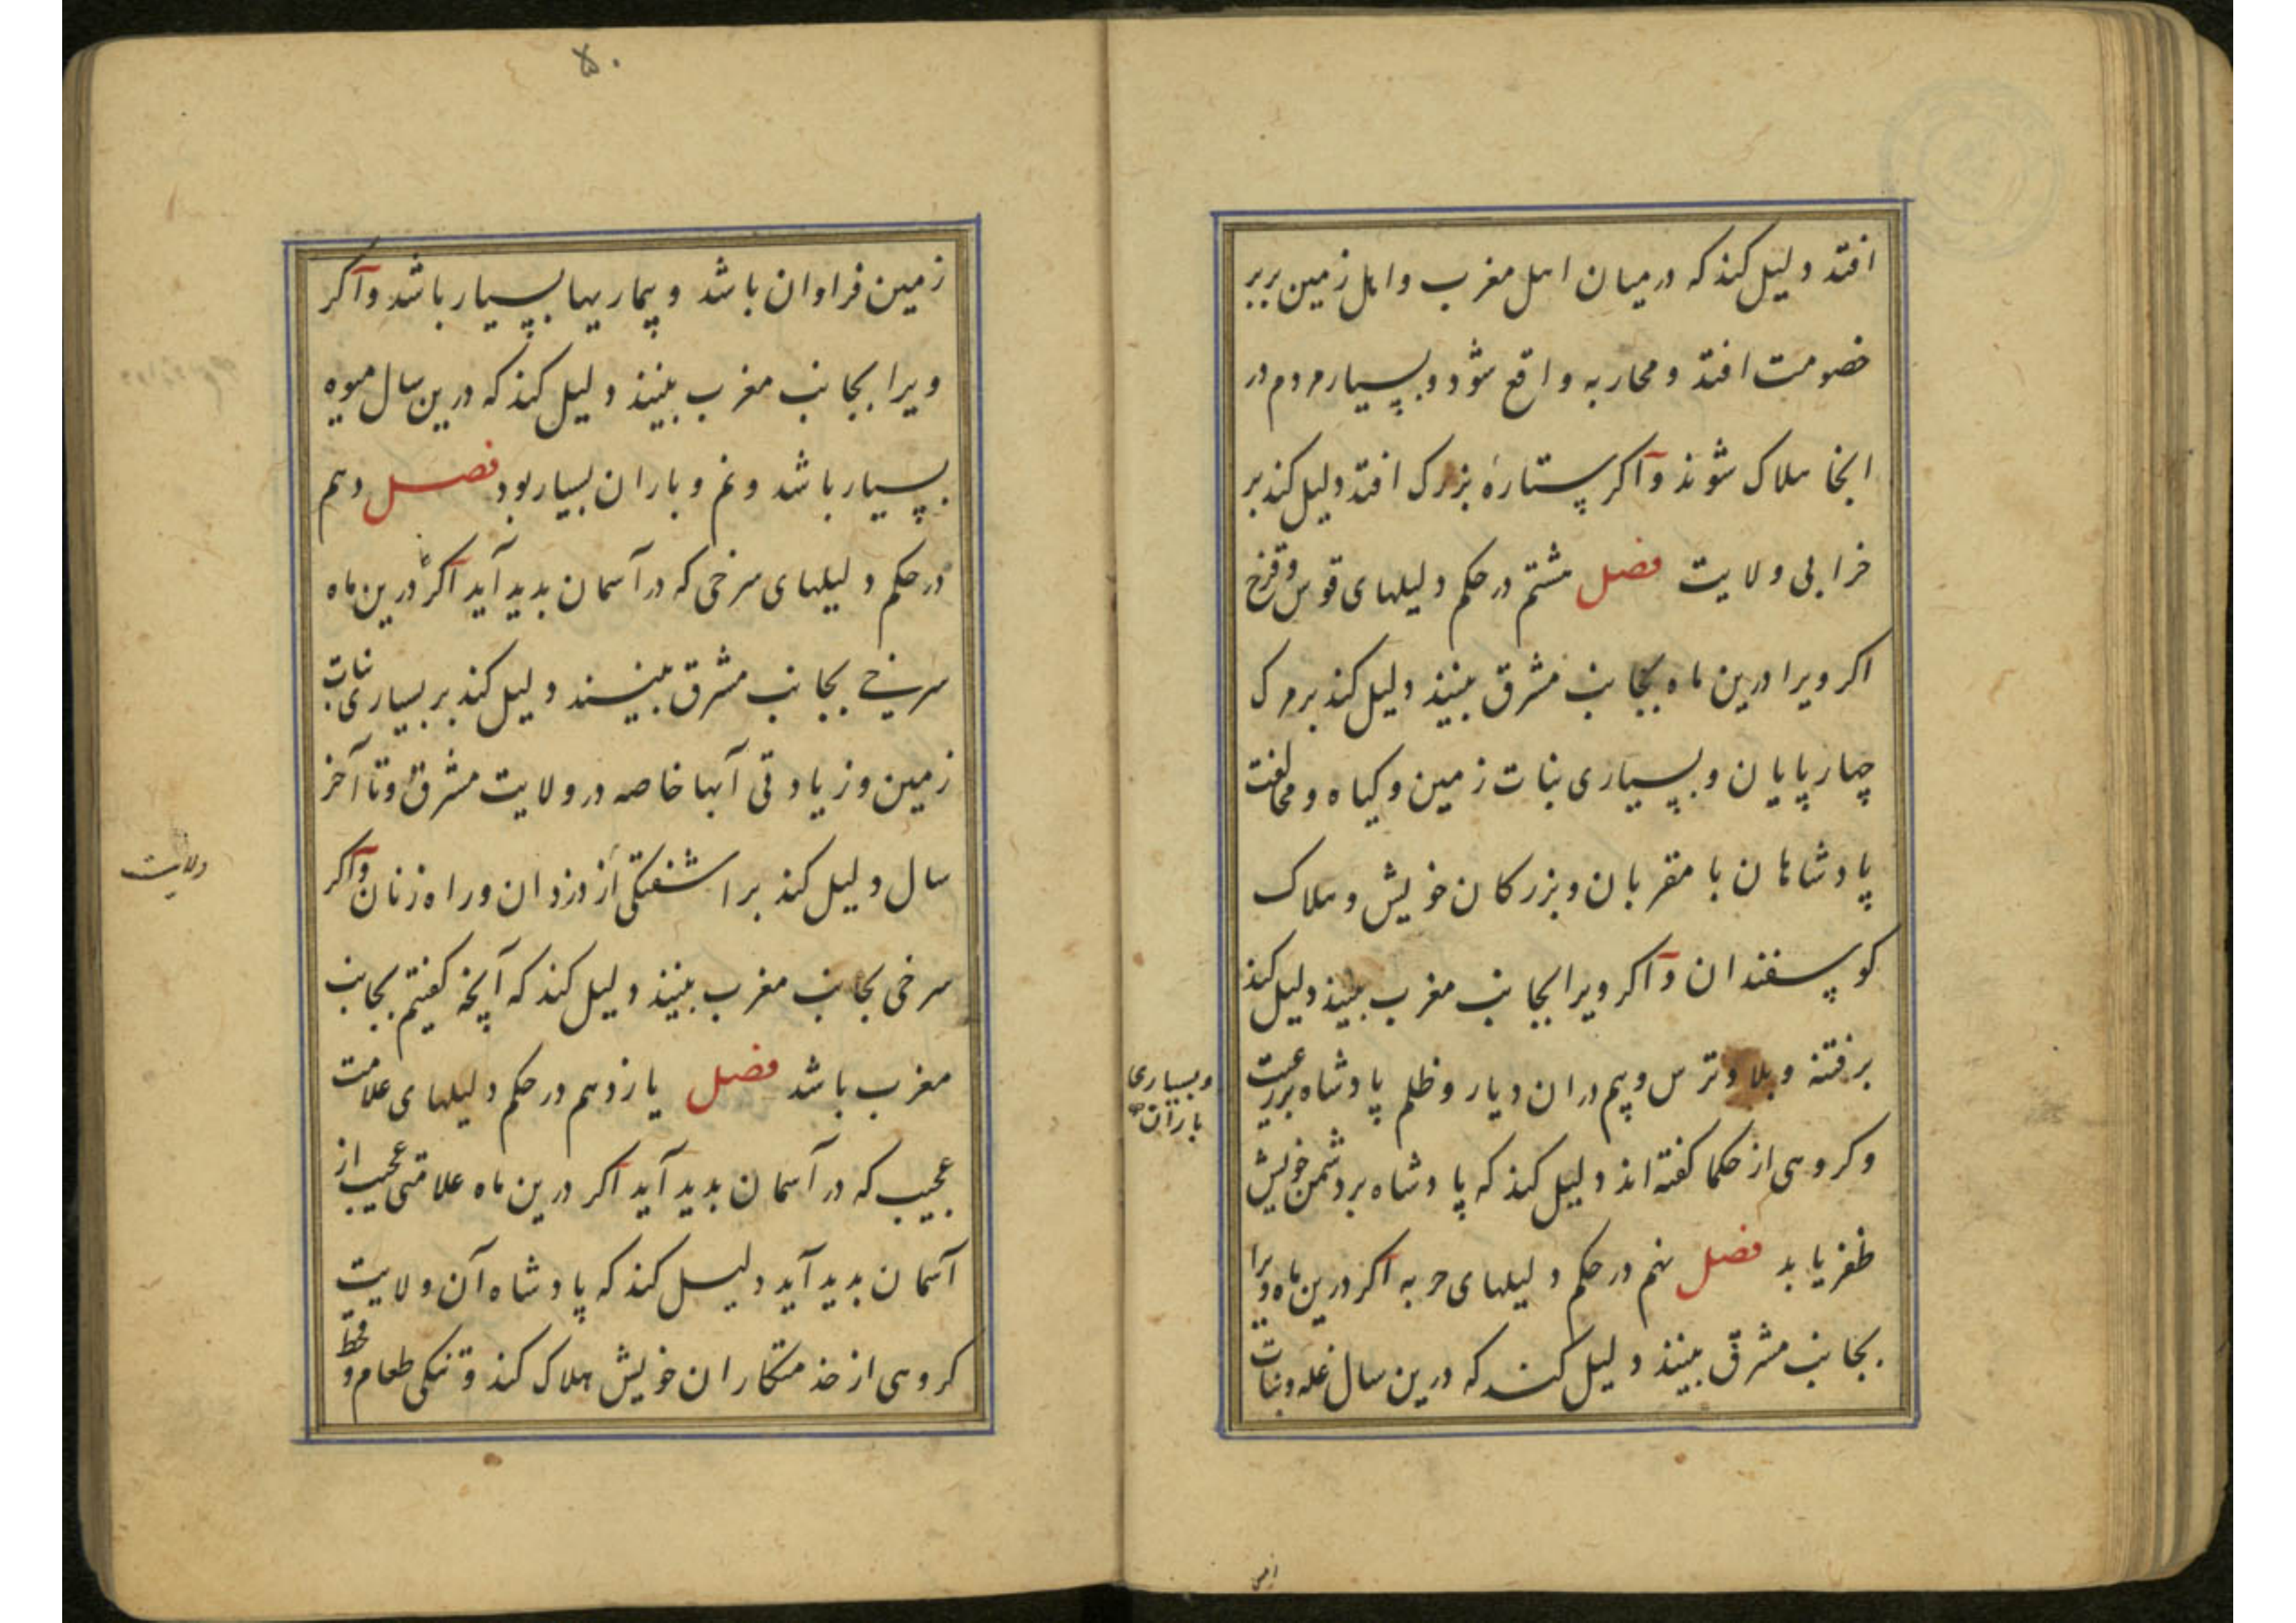 افتد دلیل کند که در میان اهل مغرب و اهل زمین بربر
خصومت افتد و محاربه واقع شود و بسیار مردم در
انجا هلاک شوند و اکر ستارهٔ بزرک افتد دلیل کند بر
خرابی ولایت فصل هشتم در حکم دلیلهای قوس و قزح
اکر ویرا درین ماه بجانب مشرق بینند دلیل کند بر مرک
چهارپایان و بسیاری نبات زمین و کیاه و مخالفت
پادشاهان با مقربان و بزرکان خویش و هلاک
کوسفندان و اکر ویرا بجانب مغرب بینند دلیل کند
بر فتنه و بلا و ترس و بیم دران دیار و ظلم پادشاه بر رعیت
و بسیاری
باران
و کروهی از حکما کفته‌اند دلیل کند که پادشاه بر دشمن خویش
ظفر یابد فصل نهم در حکم دلیلهای حربه اکر درین ماه ویرا
بجانب مشرق بینند دلیل کند که درین سال غله و نبات
زمین
۵۰
زمین فراوان باشد و بیماریها بسیار باشد و اکر
ویرا بجانب مغرب بینند دلیل کند که درین سال میوه
بسیار باشد و نم و باران بسیار بود فصل دهم
در حکم دلیلهای سرخی که در آسمان بدید آید اکر درین ماه
سرخی بجانب مشرق بینند دلیل کند بر بسیاری نبات
زمین و زیادتی آبها خاصه در ولایت مشرق و تا آخر
سال دلیل کند بر اشفتکی از دزدان و راه زنان و اکر
ولایت
سرخی بجانب مغرب بینند دلیل کند که آنچه کفتیم بجانب
مغرب باشد فصل یازدهم در حکم دلیلهای علامت
عجیب که در آسمان بدید آید اکر درین ماه علامتی عجیب از
آسمان بدید آید دلیل کند که پادشاه آن ولایت
کروهی از خذمتکاران خویش هلاک کند و تنکی طعام و قحط